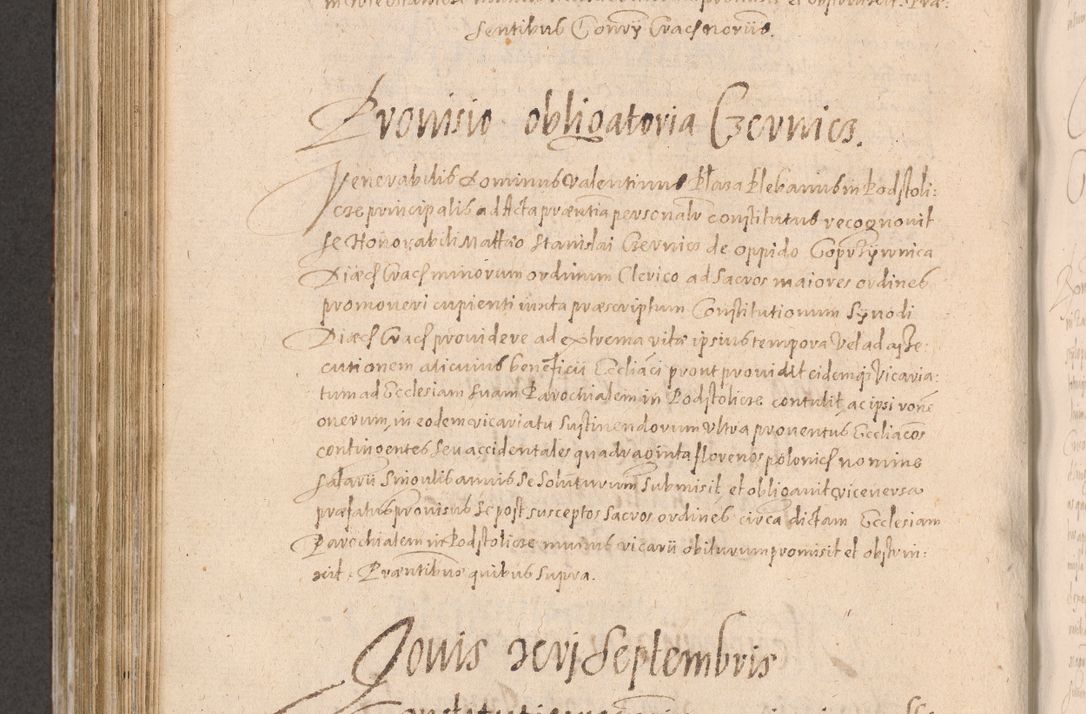 sentibus Conrz Cracſ noriis.
Prouisio obligatoria Czernics.
Venerabilis Dominus Valentinus Płaza Plebanus in Podſtoli:
cze principalis ad Acta præntia personalr conſtitutus recognouit
se Honorabili Mattæo Stanislai Czernics de oppido Coprziwnica
Diæcſ Cracſ minorum ordinum Clerico ad Sacros maiores ordines
promoueri cupienti iuxta præscriptum Conſtitutionum Synodi
Diæcſ Cracſ prouidere ad extrema vitæ ipsius tempora Vel ad aſse:
cutionem alicuius beneficii Eccliaſci prout prouidit eidemq; Vicaria:
tum ad Ecclesiam suam Parochialem in Podſtolicze contulit, ac ipsi rone
onerum, in eodem vicariatu suſtinendorum vltra prouentus Eccliacos
contingentes seu accidentales quadraginta florenos polonicſ nomine
salarii singulis annis se soluturum submisit et obligauit, vice versa
præfatus prouisus se post susceptos sacros ordines circa dictam Ecclesiam
Parochialem in Podſtolicze munus vicarii obiturum promisit et obſtrin:
xit. Præntibus quibus supra.
Jouis xxvj Septembris